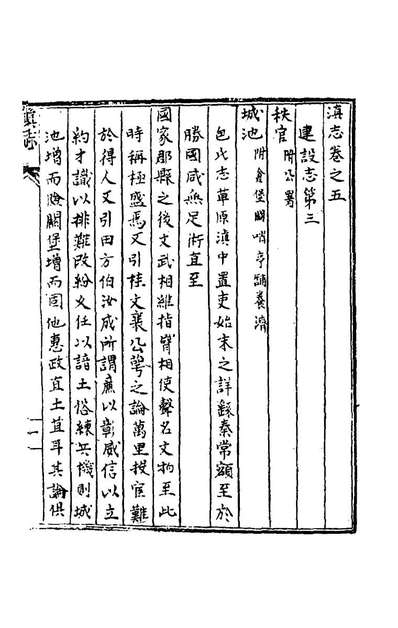 滇志卷之五
建設志第三
秩官附公署
城池附倉堡關哨亭鋪養濟
包氏志草原滇中置吏始末之詳繇秦常頞至於
勝國咸無足術直至
國家郡縣之後文武相維指臂相使聲名文物至此
時稱極盛焉又引桂文襄公萼之論萬里投官難
於得人又引田方伯汝成所謂廉以彰威信以立
約才識以排難改紛文任以諳土俗練兵機則城
池增而險關堡增而固他惠政直土苴耳其論俱
滇志